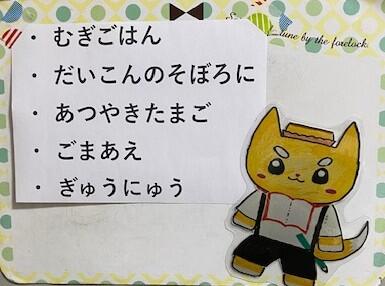 ・ むぎごはん
・ だいこんのそぼろに
・ あつやきたまご
・ ごまあえ
・ ぎゅうにゅう
by the forelock.